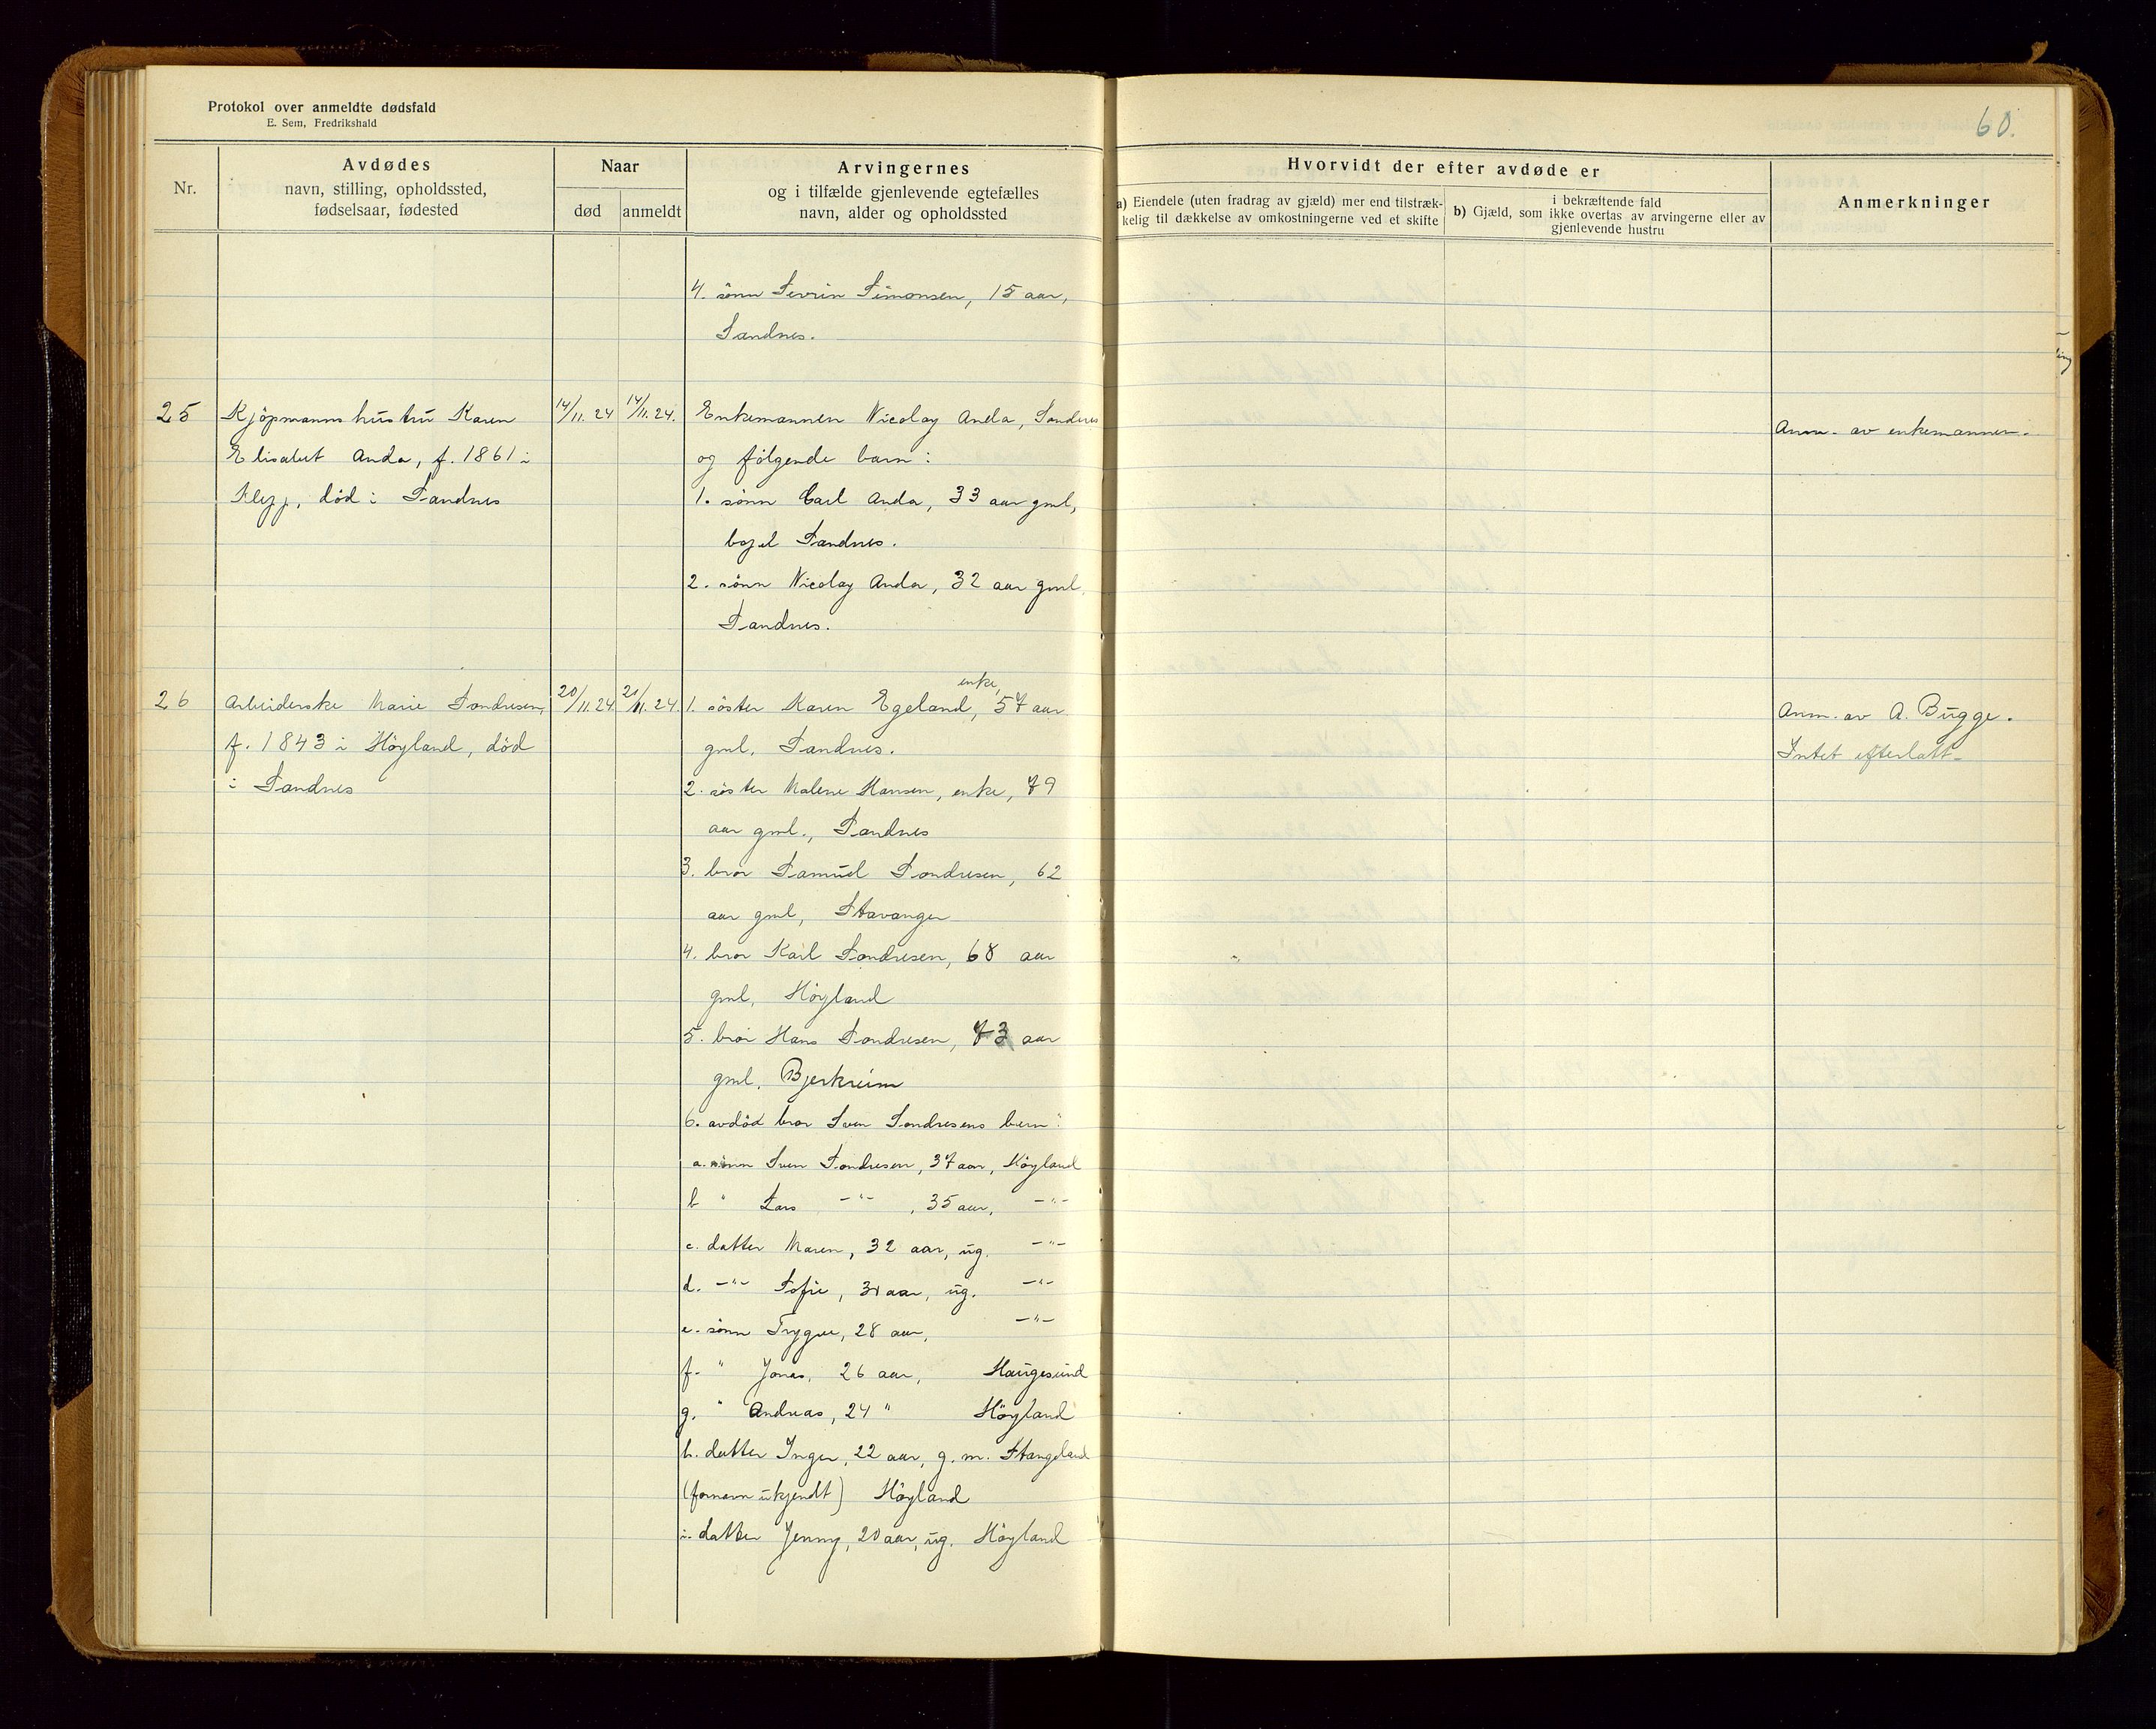 Protokol over anmeldte dødsfald
E. Sem, Fredrikshald
60.
Nr.
Avdødes
navn, stilling, opholdssted,
fødselsaar, fødested
Naar
død
anmeldt
Arvingernes
og i tilfælde gjenlevende egtefælles
navn, alder og opholdssted
Hvorvidt der efter avdøde er
a) Eiendele (uten fradrag av gjæld) mer end tilstræk-
kelig til dækkelse av omkostningerne ved et skifte
i bekræftende fald
b) Gjæld, som ikke overtas av arvingerne eller av
gjenlevende hustru
Anmerkninger
4. sönn Sevrin Simonsen, 15 aar,
Sandnes.
25
Kjöpmanns hustru Karen
Elisabet Anda, f. 1861 i
Klepp, död i Sandnes
14/11.24
14/11.24.
Enkemannen Nicolay Anda, Sandnes
og fölgende barn:
1. sönn Carl Anda, 33 aar gml,
bopel Sandnes.
2. sönn Nicolay Anda, 32 aar gml.
Sandnes.
Anm. av enkemannen.
26
Arbeiderske Marie Sondresen,
f. 1843 i Höyland, död
i Sandnes
20/11.24
21/11.24.
enke,
1. söster Karen Egeland, 57 aar
gml. Sandnes.
2. söster Malene Hansen, enke, 79
aar gml., Sandnes
3. bror Samuel Sondresen, 62
aar gml, Stavanger
4. bror Karl Sondresen, 68 aar
gml, Höyland
5. bror Hans Sondresen, 73 aar
gml. Bjerkreim
6. avdöd bror Sven Sondresens barn:
a. sönn Sven Sondresen, 37 aar, Höyland
b " Lars -"- , 35 aar, -"-
c. datter Maren, 32 aar, ug. -"-
d. -"- Sofie, 31 aar, ug. -"-
e. sönn Trygve, 28 aar, -"-
f. " Jonas, 26 aar, Haugesund
g. " Andreas, 24 " Höyland
h. datter Inger, 22 aar, g. m. Stangeland
(fornavn ukjendt) Höyland
i. datter Jenny, 20 aar, ug. Höyland
Anm. av A. Bugge.
Intet efterlatt.